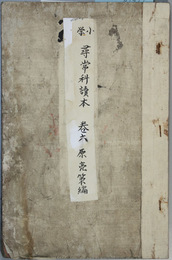 小学
尋常科讀本 卷六 原亮策編